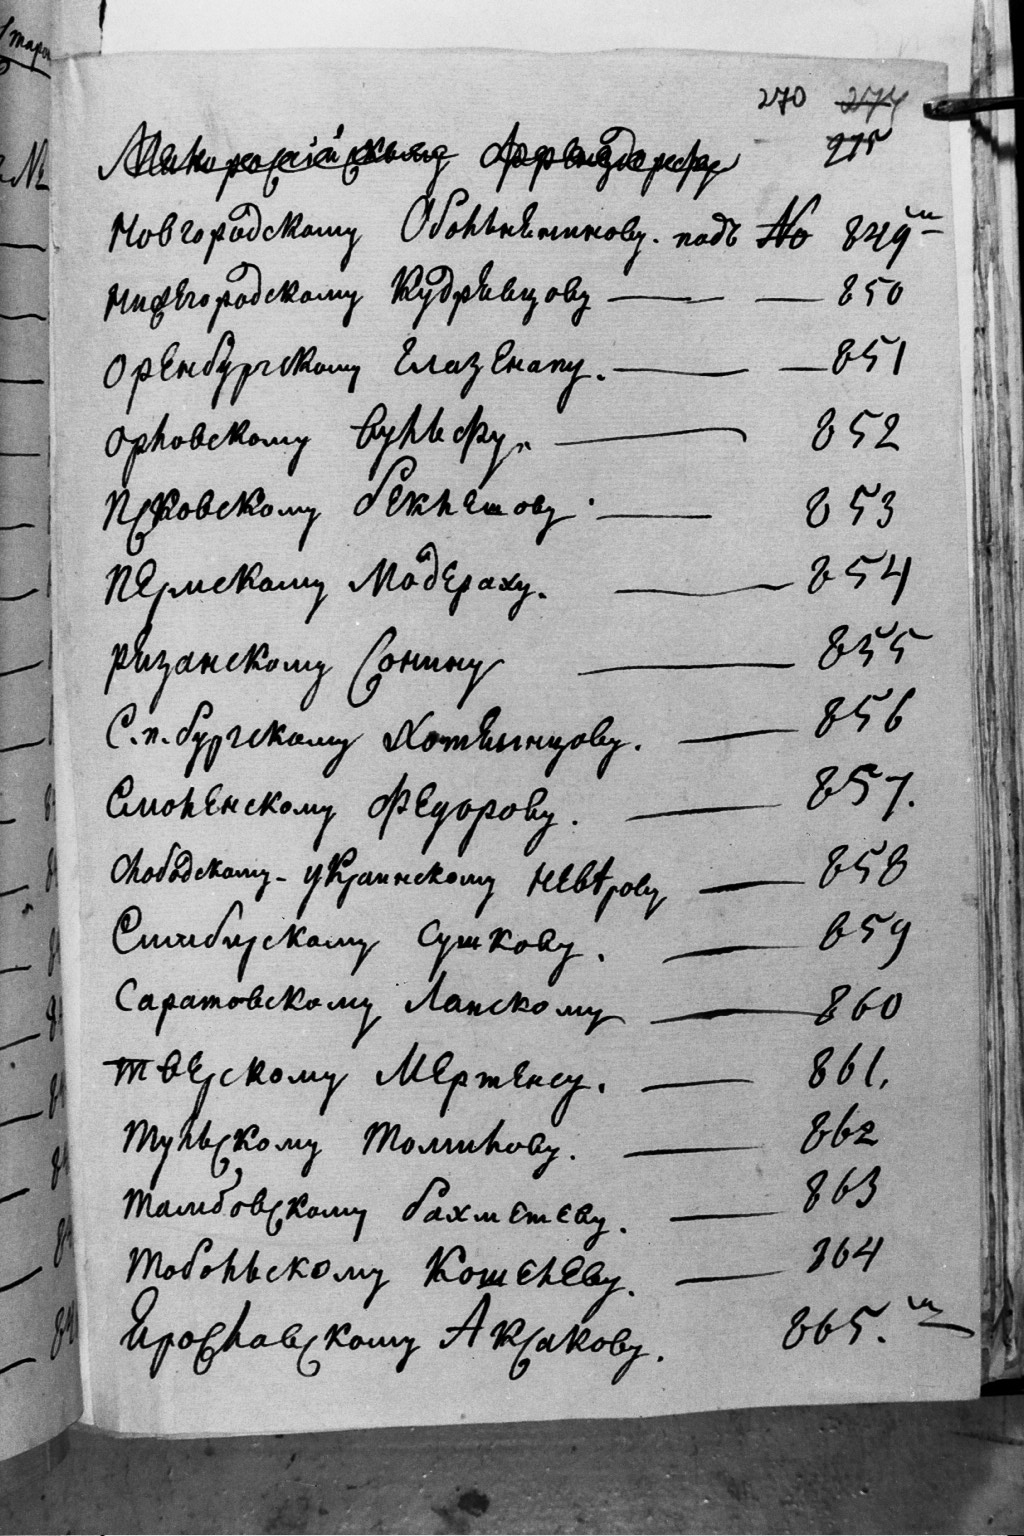 270 274
275
Малороссійскому
Новгородскому Обольянинову. подъ No 849мъ
Нижегородскому Кудрявцову 850
Оренбургскому Глазенапу. 851
Орловскому Вульфу. 852
Псковскому Беклешову 853
Пермскому Модераху. 854
Рязанскому Сонину 855
С.п.бургскому Хотяинцову. 856
Смоленскому Федорову. 857.
Слободскому-украинскому 858
Симбирскому Сушкову. 859
Саратовскому Ланскому 860
Тверскому Мертенсу. 861.
Тульскому Томилову. 862
Тамбовскому Бахметеву. 863
Тобольскому Кошелеву. 864
Ярославскому Аксакову. 865.мъ